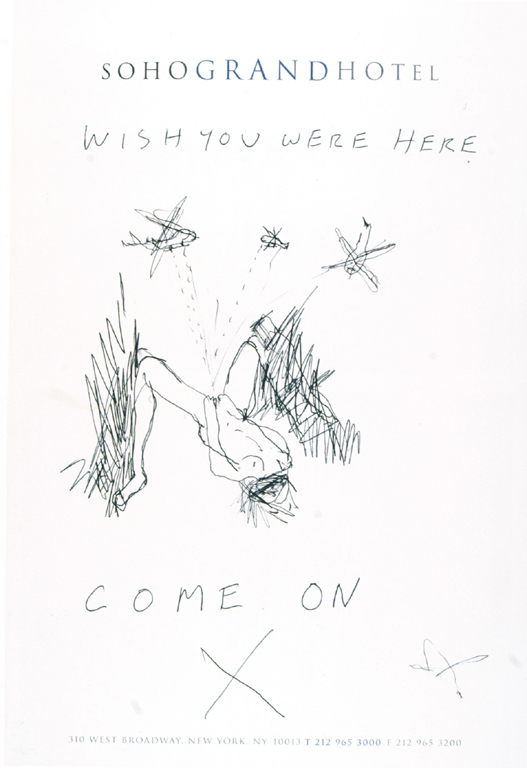 SOHOGRANDHOTEL
WISH YOU WERE HERE.
COME ON
X
310 WEST BROADWAY, NEW YORK, NY 10013 T 212 965 3000 F 212 965 3200